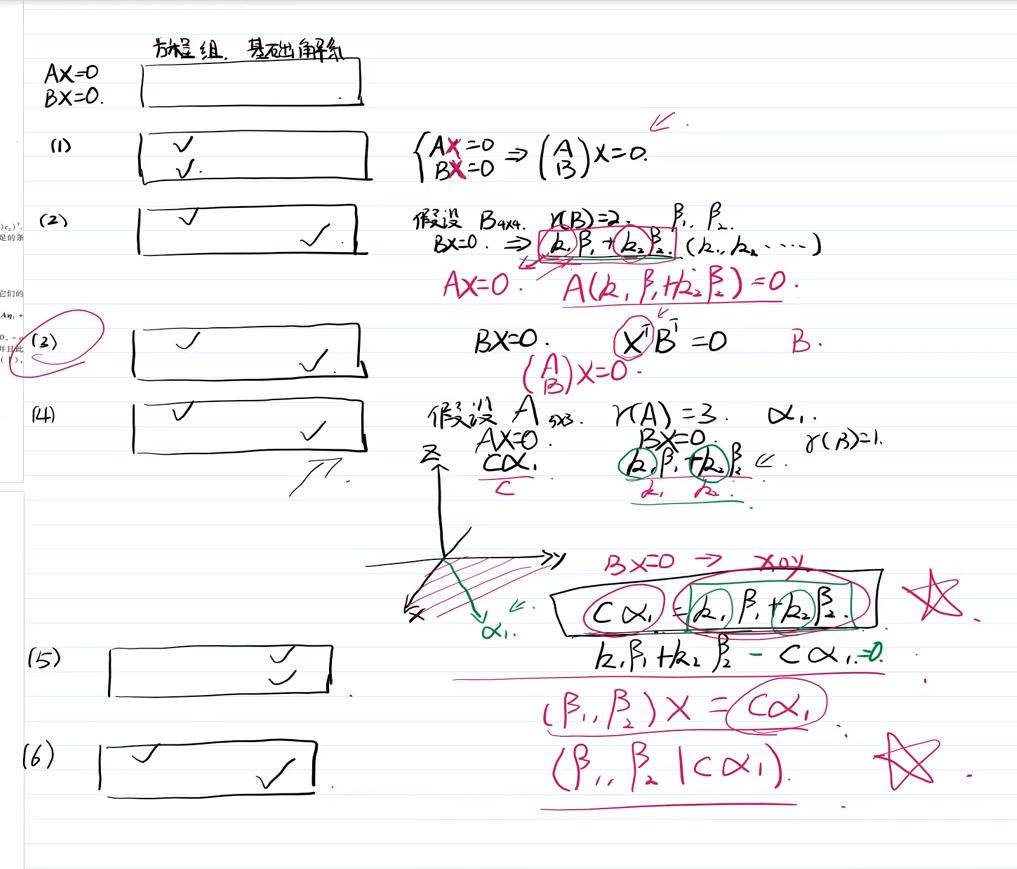 方程组. 基础解系
AX=0
BX=0.
(1)
{AX=0 BX=0 ⇒ (A B)X=0.
(2)
假设 B₄ₓ₄. r(B)=2. β₁, β₂.
BX=0. ⇒ k₁β₁+k₂β₂. (k₁, k₂ ·····)
AX=0. A(k₁β₁+k₂β₂)=0.
(3)
BX=0. XᵀBᵀ=0 B.
(A B)X=0.
(4)
假设 A₅ₓ₃. r(A)=3. α₁.
AX=0. BX=0. r(B)=1.
Cα₁ k₁β₁+k₂β₂
C k₁ k₂.
Z
y
x
α₁.
BX=0 → xoy
Cα₁=k₁β₁+k₂β₂.
k₁β₁+k₂β₂-Cα₁=0.
(5)
(β₁, β₂)X=Cα₁
(6)
(β₁, β₂|Cα₁).
)c₂)ᵀ.
足的条
它们的
Aη₁+